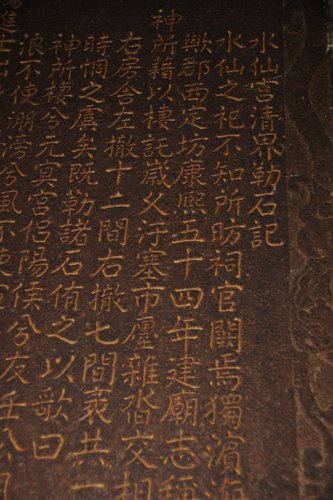 水仙宮清界勒石記
水仙之祀不知所昉祠官闕焉獨濱
歟郡西定坊康熙五十四年建廟志稱
神所藉以棲託歲乂汙塞市廛雜沓交相
右房合左撤十二間右撤七間袤共一
時恫之虞矣既勒諸石侑之以歌曰
神所棲兮元真宮侶陽侯兮友壬公
浪不使淜滂兮風不使
進士出